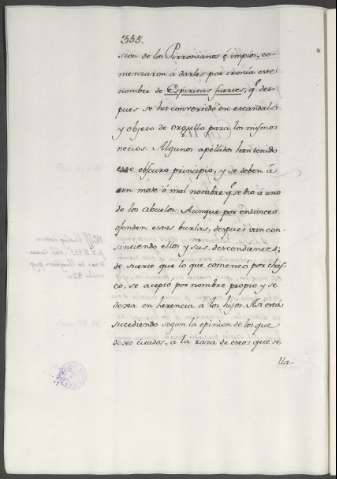 358.
sion de los Pirronianos é impios, co-
menzaron á darles por ironía este
nombre de Espiritus fuertes, q.e des-
pues se ha convertido en escandalo
y objeto de orgullo para los mismos
necios. Algunos apellidos han tenido
este obscuro principio, y se deben á
un mote ó mal nombre q.e se dio á uno
de los abuelos. Aunque por entonces
ofenden estas burlas, despues van con-
sintiendo ellos y sus descendientes;
de suerte que lo que comenzó por chis-
co, se acepta por nombre propio y se
dexa en herencia á los hijos. Asi está
sucediendo segun la opinion de los que
dexo citados, á la raza de esos que se
lla-